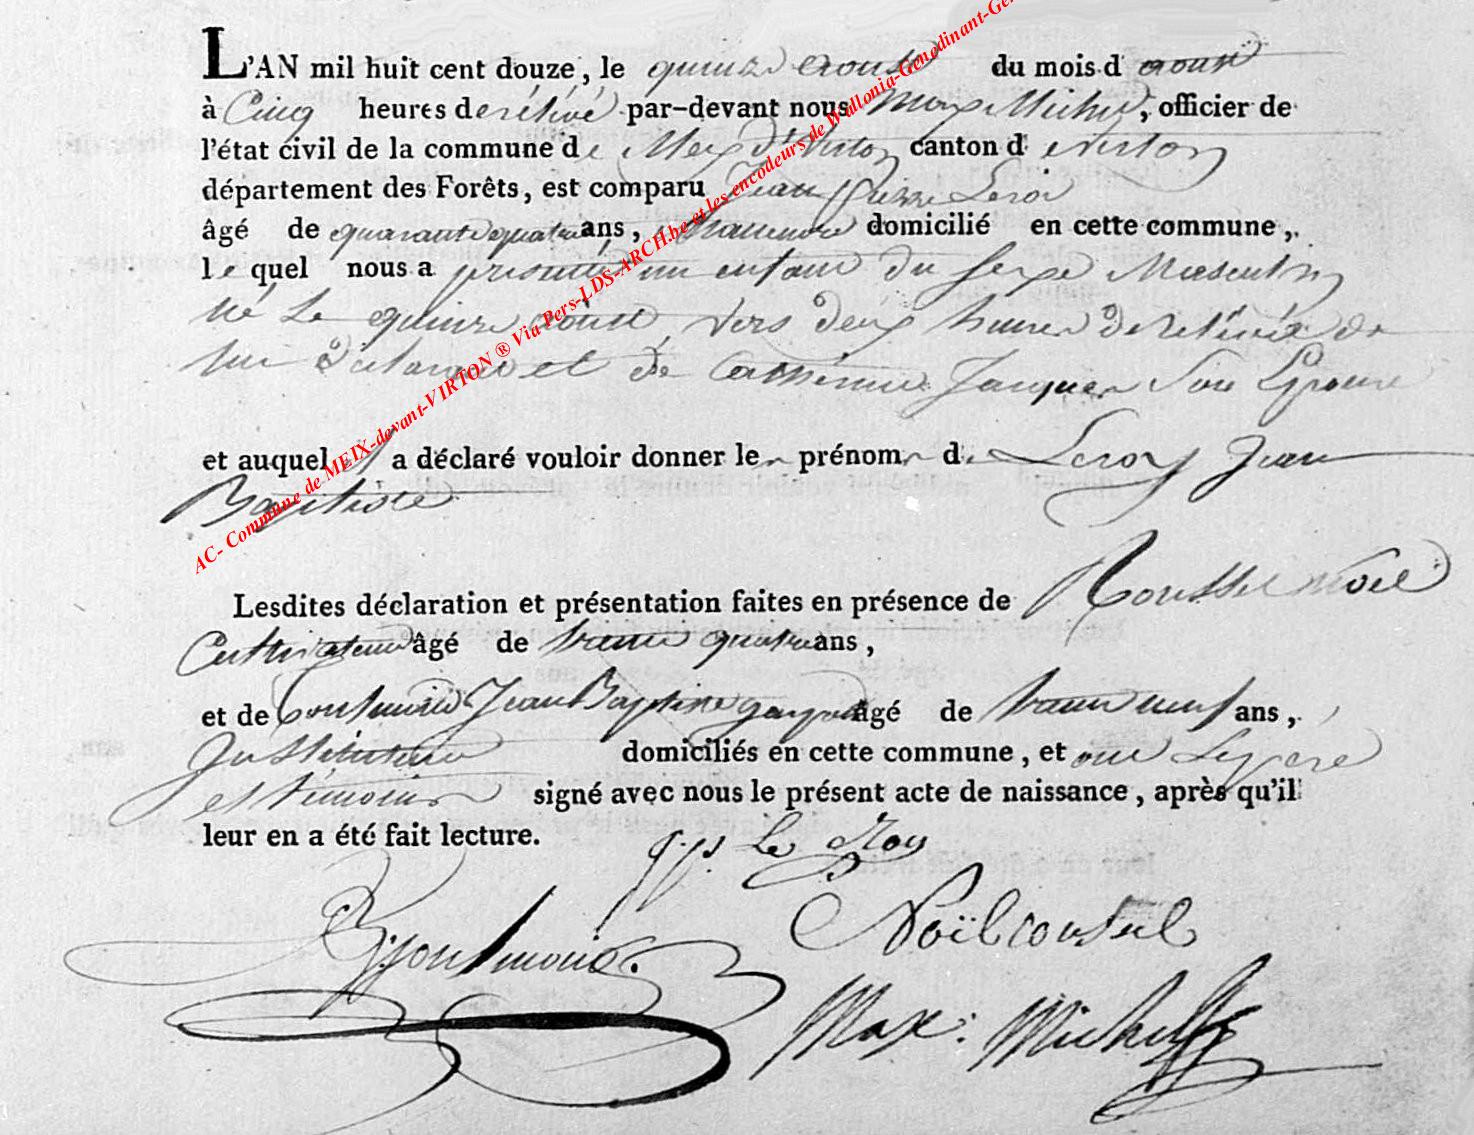 L'AN mil huit cent douze, le quinze aoust du mois d'aoust
à Cinq heures de rélévé par-devant nous Max Michel, officier de
l'état civil de la commune de Meix dt Virton canton de virton
département des Forêts, est comparu Jean pierre Leroi
âgé de quarante quatre ans, domicilié en cette commune,
le quel nous a présenté un enfant du sexe Masculin
né Le quinze aoust vers deux heures de relévée de
lui déclarant et de Catherine Jacques Son Epouse
et auquel il a déclaré vouloir donner le prénom de Leroy Jean
Baptiste
Lesdites déclaration et présentation faites en présence de noel
Cultivateur âgé de trente quatre ans,
et de Jean Baptiste âgé de trente neuf ans,
Instituteur domiciliés en cette commune, et ont Le pere
et témoins signé avec nous le présent acte de naissance, après qu'il
leur en a été fait lecture.
j.p. Le Roy
Noël
Max: Michel
AC- Commune de MEIX-devant-VIRTON ® Via Pers-LDS-ARCH.be et les encodeurs de Wallonia-Genedinant-Ge